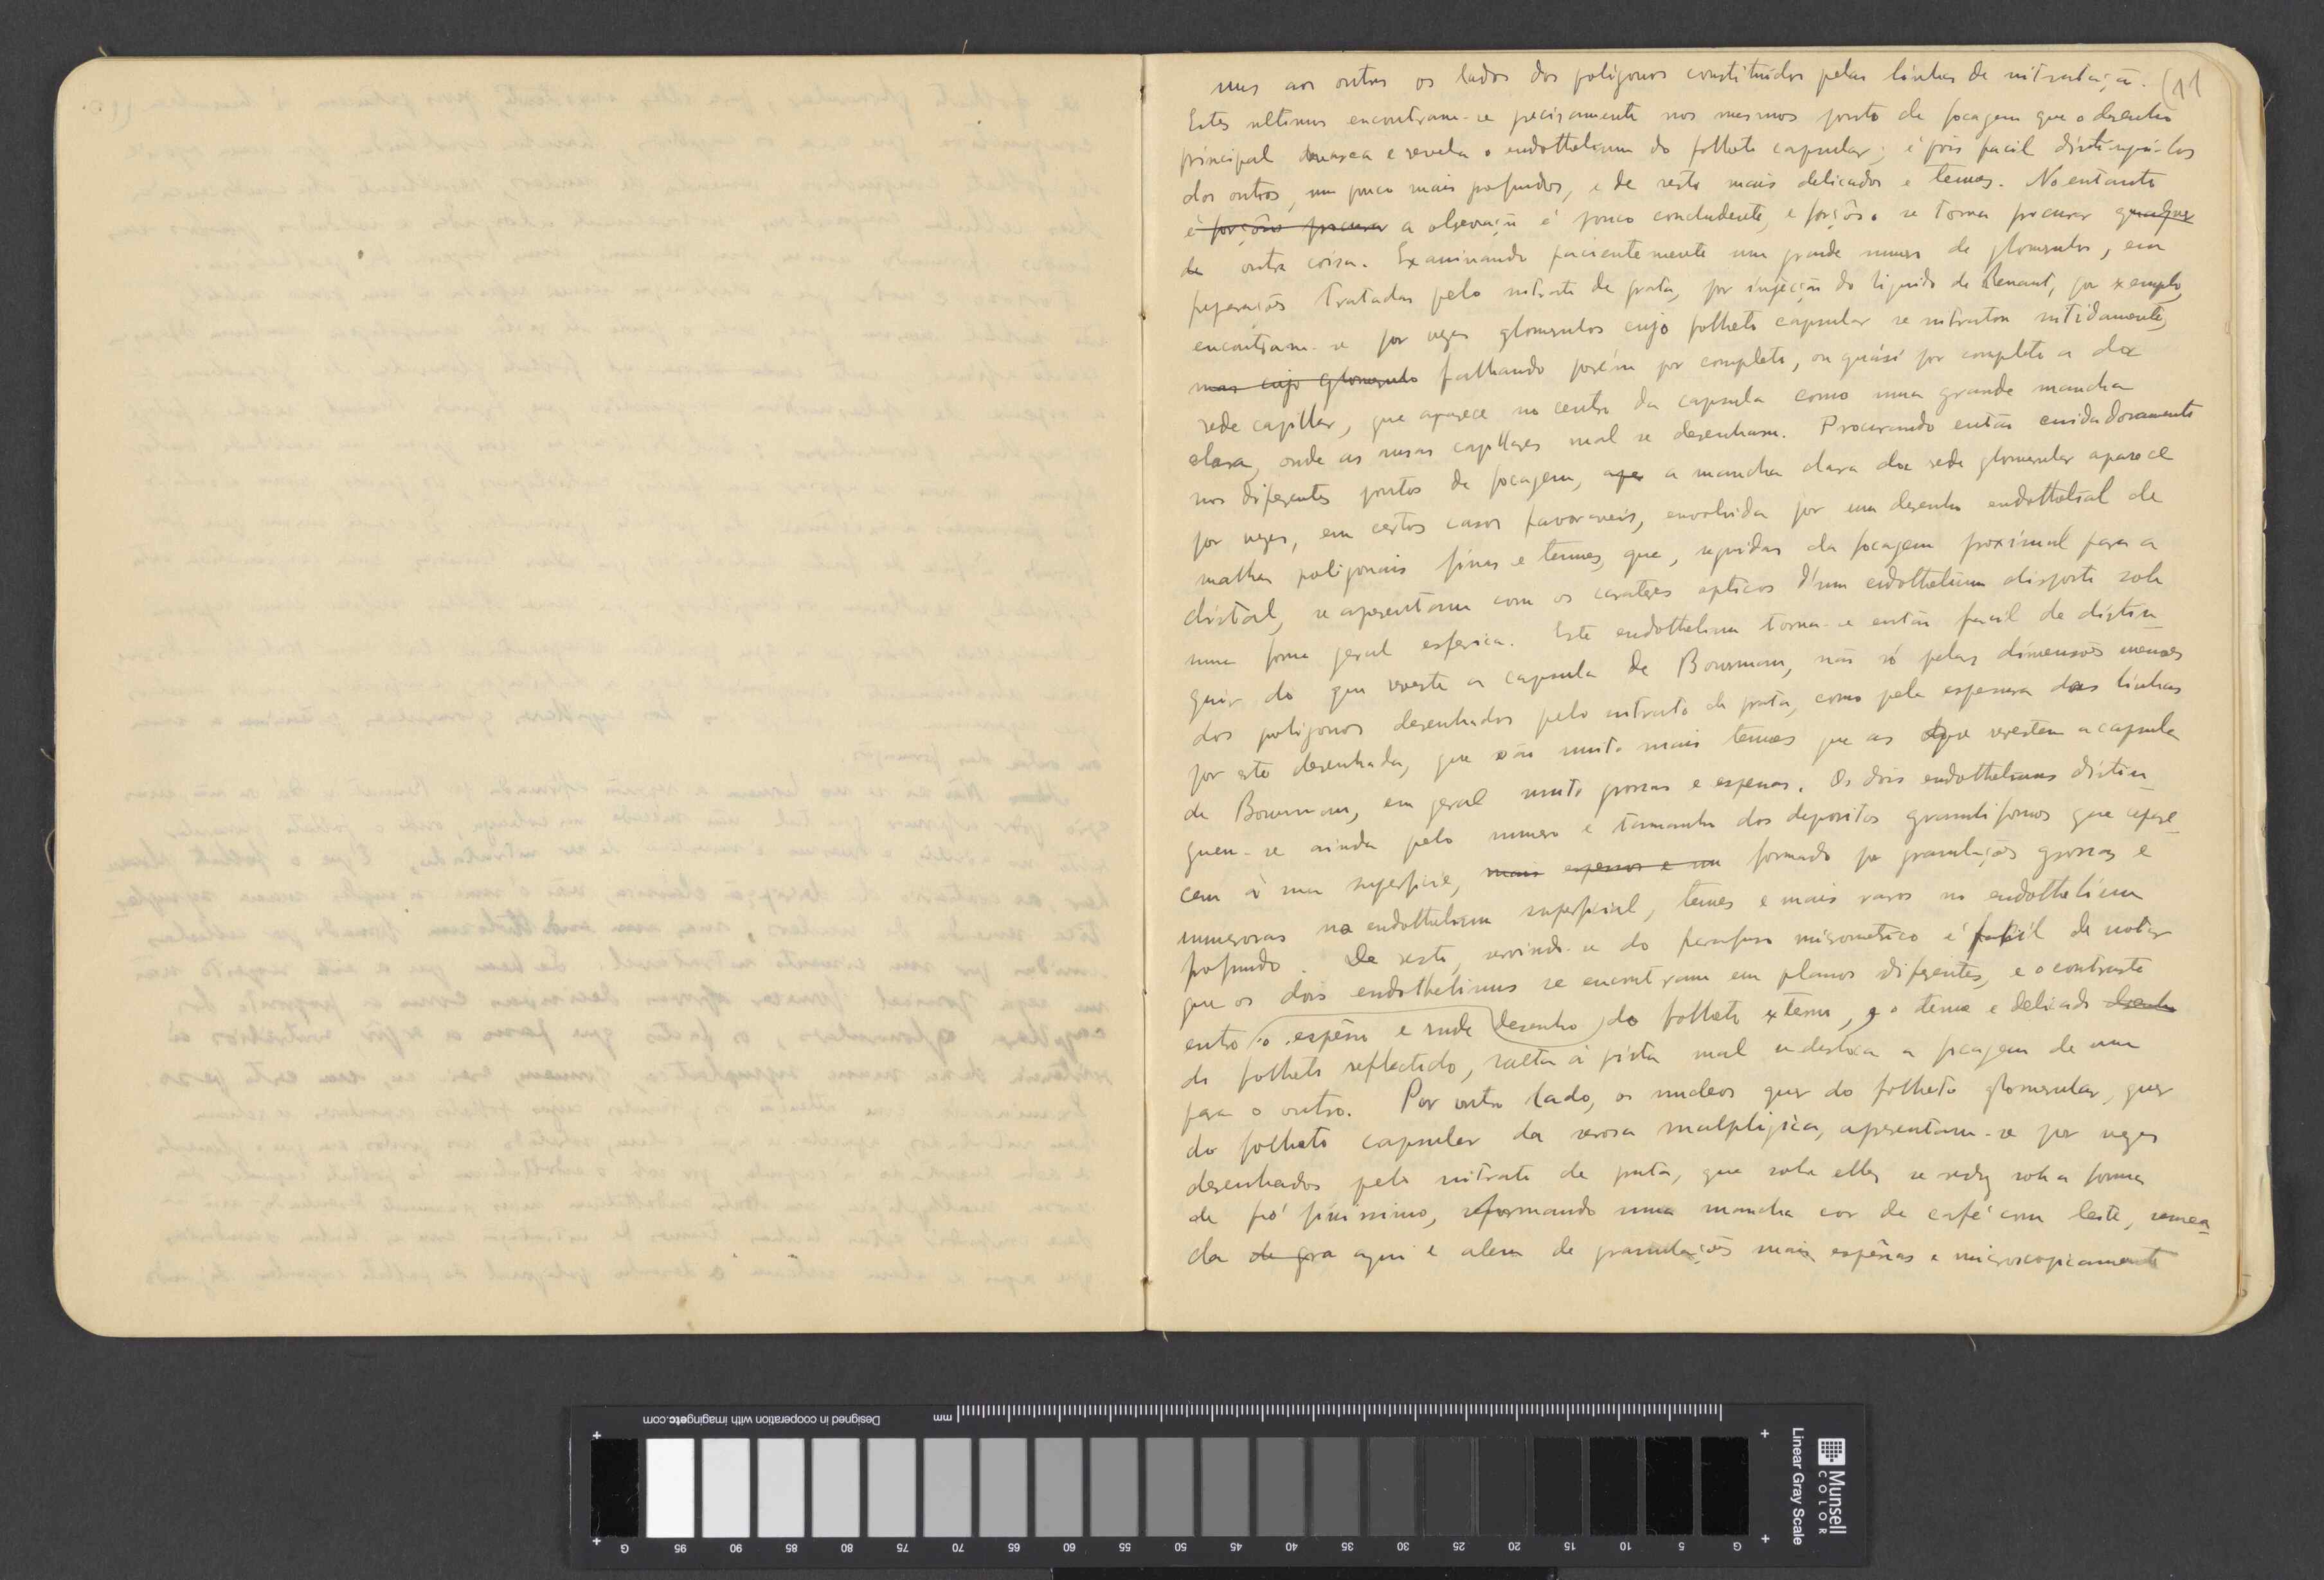 uns aos outros os lados dos polígonos constituidos pelas linhas de nitratação. (11
Estes ultimos encontram-se precisamente nos mesmos pontos de focagem que o desenho
principal demarca e revela o endothelium do folheto capsular; é pois facil distingui-los
dos outros, um pouco mais profundos, e de resto mais delicados e tenues. No entanto
é forçoso procurar a observação é pouco concludente, e forçôso se torna procurar qualquer
de outra coisa. Examinando pacientemente um grande numero de glomerulos, em
preparações tratadas pelo nitrato de prata, por injecção do liquido de Renaut, por exemplo,
encontram-se por vezes glomerulos cujo folheto capsular se nitratou nitidamente,
mas cujo glomerulo falhando porém por completo, ou quási por completo a da
rede capillar, que aparece no centro da capsula como uma grande mancha
clara, onde as ansas capillares mal se desenham. Procurando então cuidadosamente
nos diferentes pontos de focagem, a mancha clara da rede glomerular aparece
por vezes, em certos casos favoraveis, envolvida por um desenho endothelial de
malhas poligonais finas e tenues, que, seguidas da focagem proximal para a
distal, se apresentam com os carateres opticos d'um endothelium disposto sob
uma forma geral esferica. Este endothelium torna-se então facil de distin_
guir do que reveste a capsula de Bowmann, não só pelas dimensões menores
dos poligonos desenhados pelo nitrato de prata, como pela espessura das linhas
por este desenhadas, que são muito mais tenues que as que revestem a capsula
de Bowmann, em geral muito grossas e espessas. Os dois endotheliums distin_
guem-se ainda pelo numero e tamanho dos depositos granuliformes que apare_
cem à sua superficie, mais espessos e formado por granulações grossas e
numerosas no endothelium superficial, tenues e mais raros no endothelium
profundo. De resto, servindo-se do parafuso micrometrico é facil de notar
que os dois endotheliums se encontram em planos diferentes, e o contraste
entre o espêsso e rude desenho do folheto externo, e o tenue e delicado desenho
do folheto reflectido, salta à vista mal se desloca a focagem de um
para o outro. Por outro lado, os nucleos quer do folheto glomerular, quer
do folheto capsular da serosa malpligica, apresentam-se por vezes
desenhados pelo nitrato de prata, que sobre elles se reduz sob a forma
de pó finissimo, formando uma mancha cor de café com leite, semea_
da de gra aqui e alem de granulações mais espêssas e microscopicamente
Designed in cooperation with imagingetc.com
mm
G 95 90 85 80 75 70 65 60 55 50 45 40 35 30 25 20 15 10 5 G
Linear Gray Scale
Munsell
COLOR